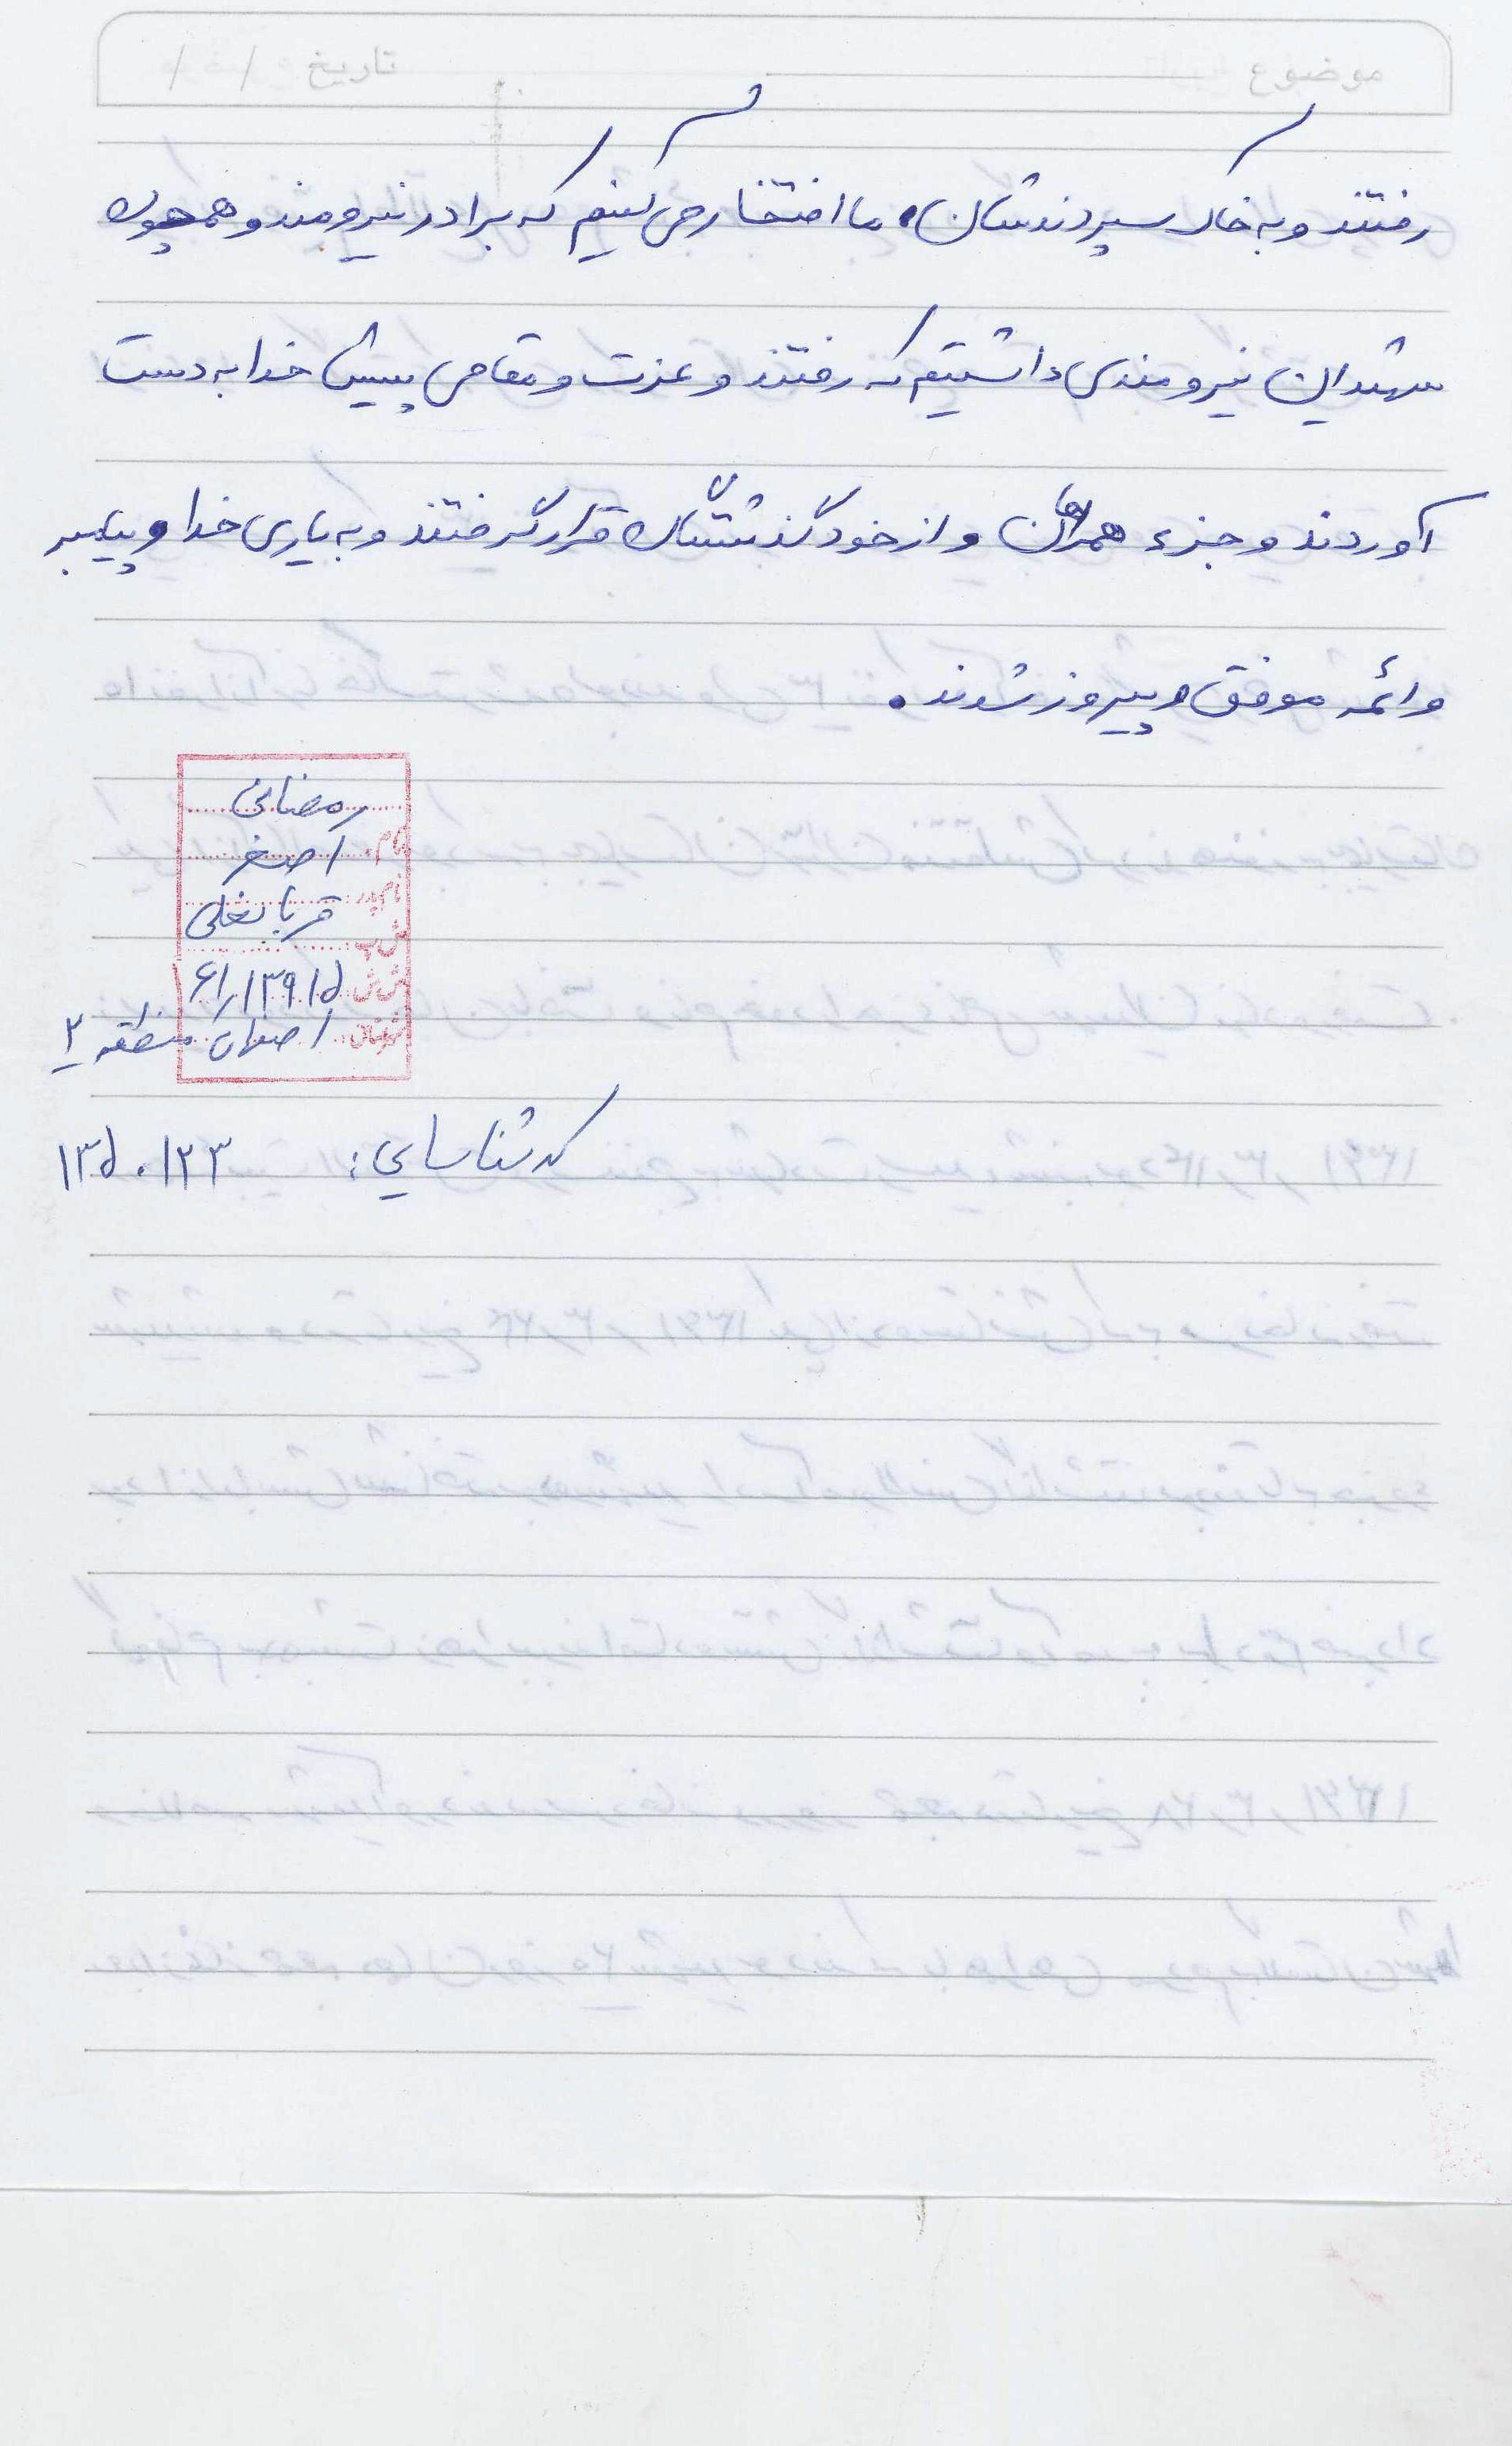 موضوع تاریخ / /
رفتند و به خاک سپردندشان. ما افتخار می کنیم که برادر نیرومند و همچون
شهدای نیرومندی داشتیم که رفتند و عزت و مقامی پیش خدا به دست
آوردند و جزء همراهان و از خود گذشتگان قرار گرفتند و به یاری خدا و پیامبر
و ائمه موفق و پیروز شوند.
رمضانی
نام: اصغر
نام پدر: قربانعلی
ش پ:
ش ش: ۶۱٫۱۳۹۱۵
شهرستان: اصفهان منطقه ۲
کد شناسایی: ۱۳۵۰۱۲۳